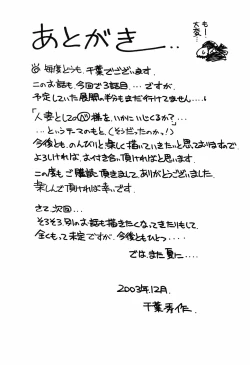 あとがき..
もー
大変…
毎度どうも、千葉でございます。
このお話も、今回で3話目...ですが、
予定していた展開の半分もまだ行けてません....
「人妻としての 様を、いかにいじくるか?」...
...というテーマのもと、(そうだったのか!)
今後とも、のんびりと楽しく描いていきたいと思っておりますので
よろしければ、お付き合い頂ければと思います。
この度も、ご購読頂きまして、ありがとうございました。
楽しんで頂ければ幸いです。
さて、次回...
そろそろ別のお話も描きたくなってきたりもして、
全くもって未定ですが、今後ともひとつ....
では、また夏に....
2003年12月.
千葉秀作.